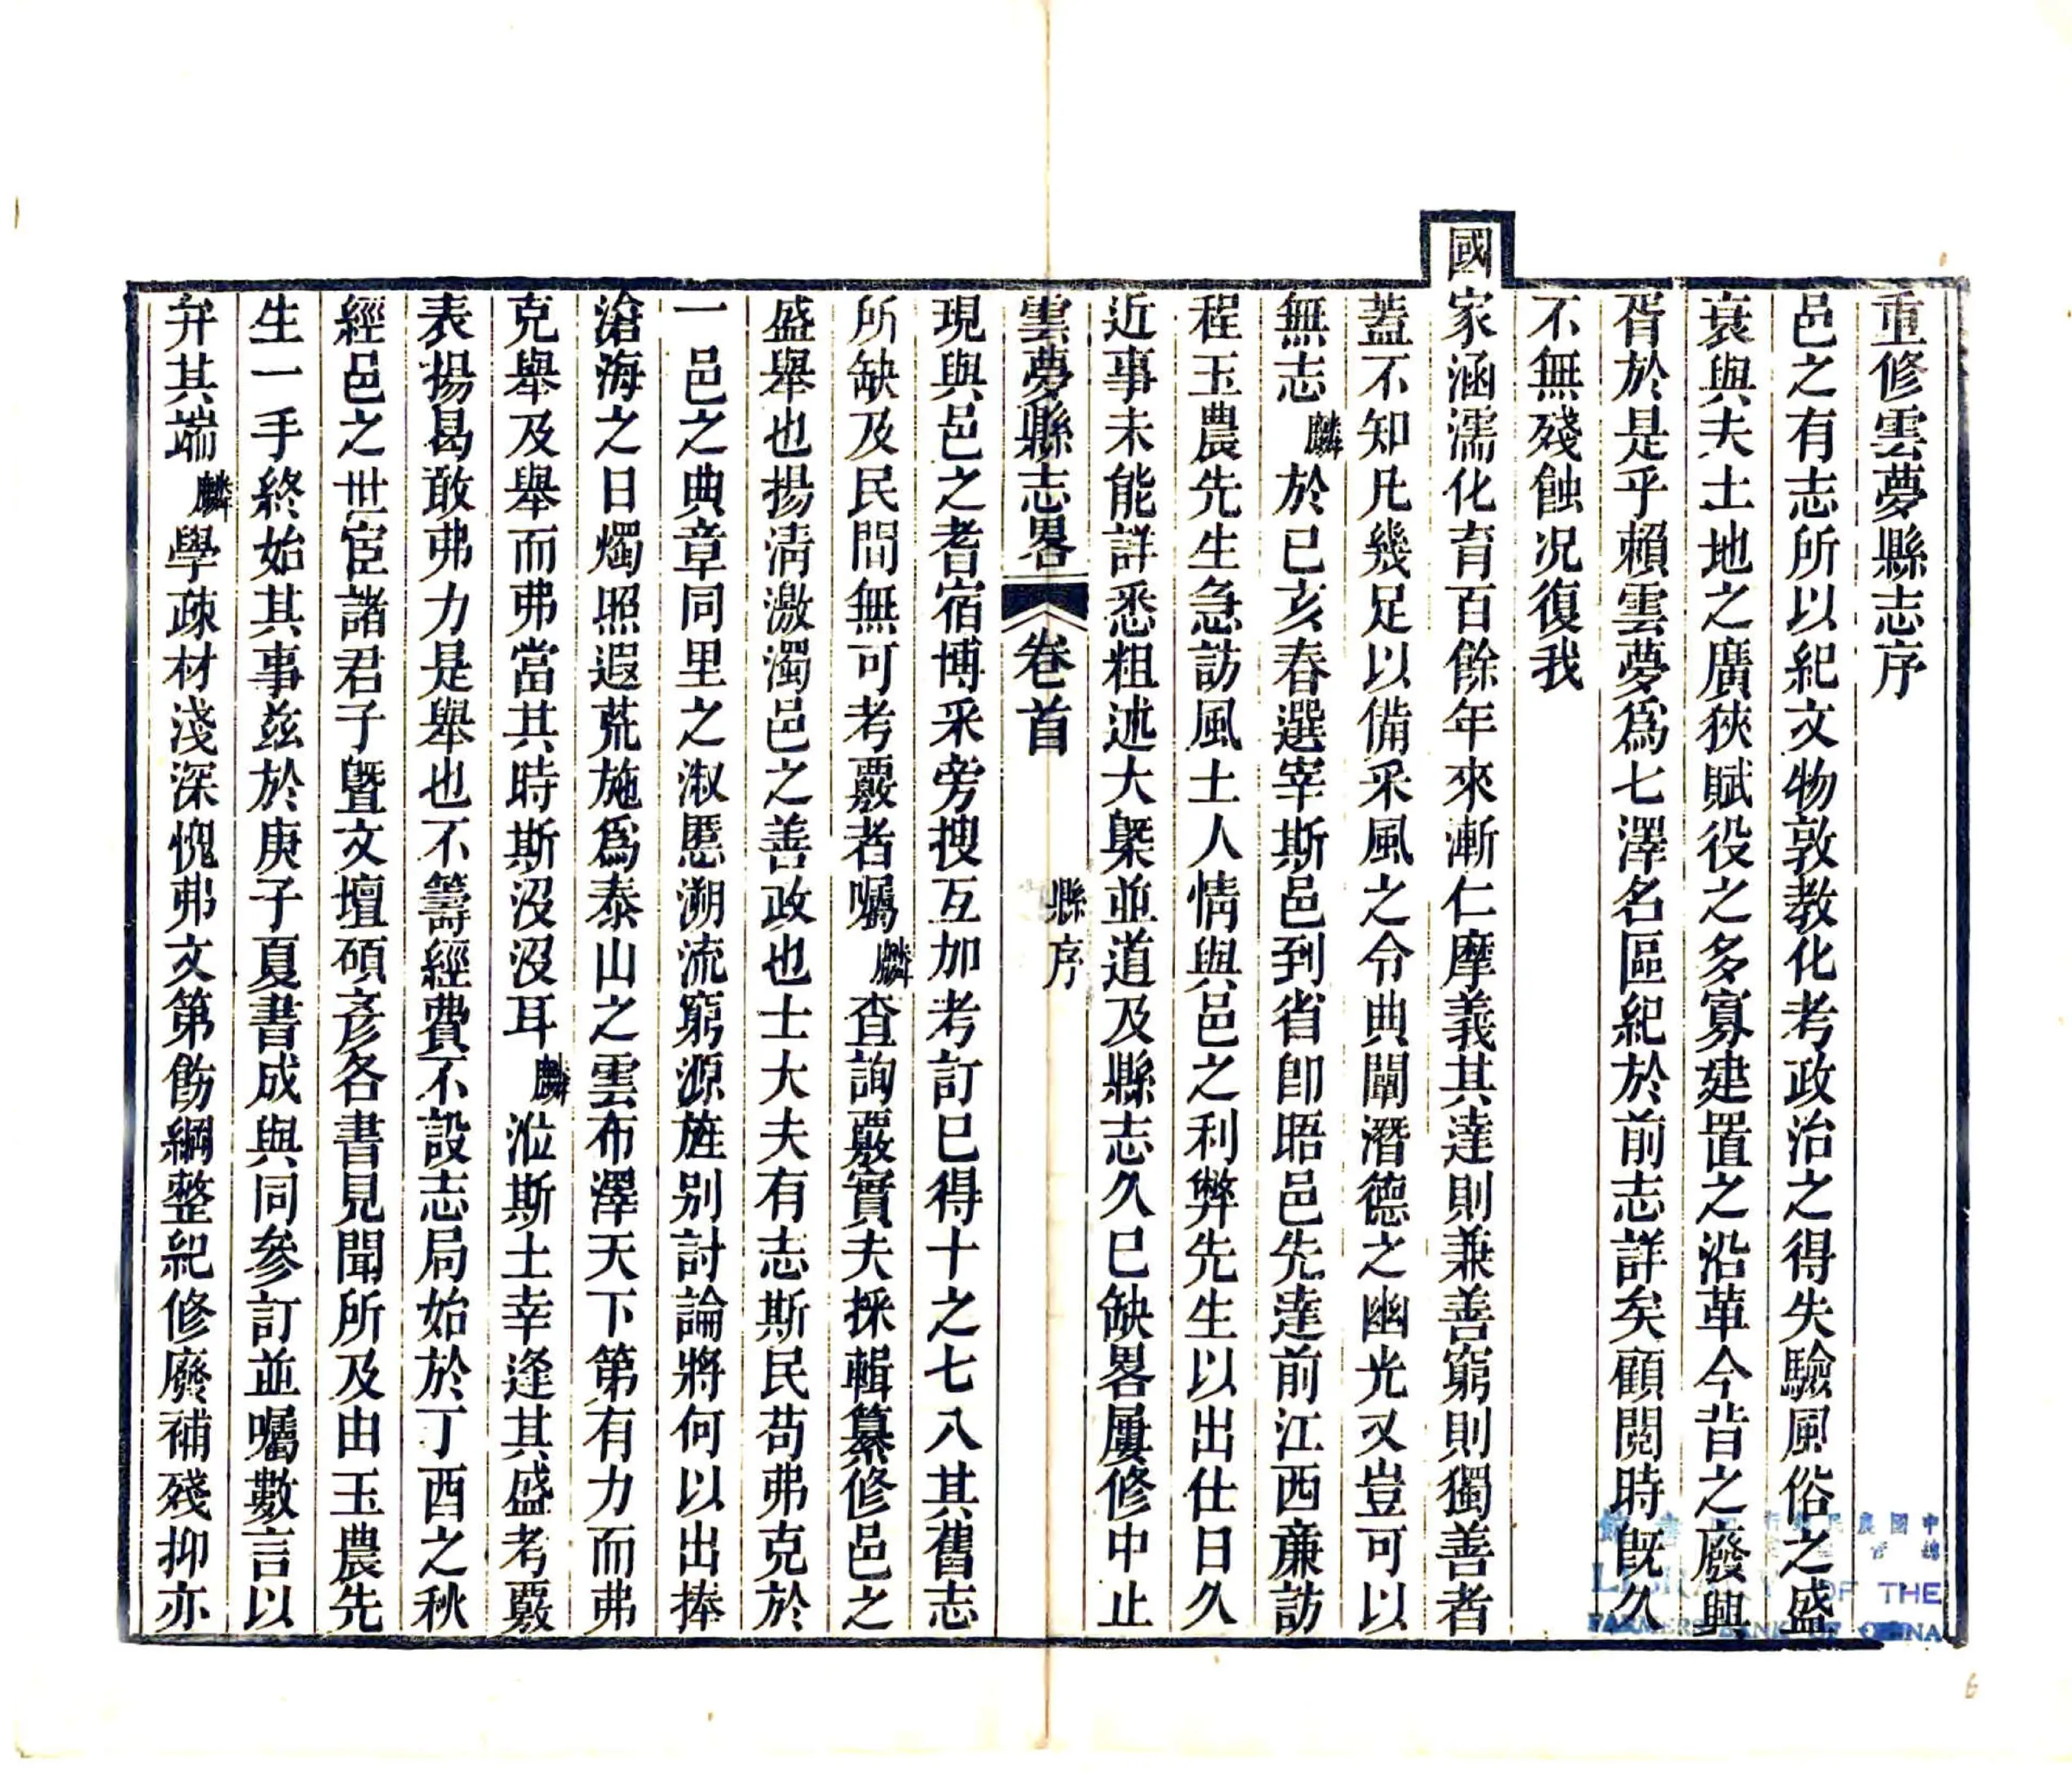 重修雲夢縣志序
邑之有志所以紀文物敦教化考政治之得失驗風俗之盛
衰與夫土地之廣狹賦役之多寡建置之沿革今昔之廢興
胥於是乎賴雲夢爲七澤名區紀於前志詳矣顧閱時旣久
不無殘蝕况復我
國家涵濡化育百餘年來漸仁摩義其達則兼善窮則獨善者
蓋不知凡幾足以備采風之令典闡潛德之幽光又豈可以
無志麟於已亥春選宰斯邑到省卽晤邑先達前江西亷訪
程玉農先生急訪風土人情與邑之利弊先生以出仕日久
近事未能詳悉粗述大槩並道及縣志久已缺畧屢修中止
雲夢縣志畧 卷首 縣序
現與邑之耆宿博采旁搜互加考訂已得十之七八其舊志
所缺及民間無可考覈者囑麟查詢覈實夫採輯纂修邑之
盛舉也揚淸激濁邑之善政也士大夫有志斯民苟弗克於
一邑之典章同里之淑慝溯流窮源旌别討論將何以出捧
滄海之日燭照遐荒施爲泰山之雲布澤天下第有力而弗
克舉及舉而弗當其時斯沒沒耳麟涖斯土幸逢其盛考覈
表揚曷敢弗力是舉也不籌經費不設志局始於丁酉之秋
經邑之世宦諸君子暨文壇碩彥各書見聞所及由玉農先
生一手終始其事兹於庚子夏書成與同參訂並囑數言以
弁其端麟學疎材淺深愧弗文第飭綱整紀修廢補殘抑亦
LIBRARY OF THE
FARMERS BANK OF CHINA